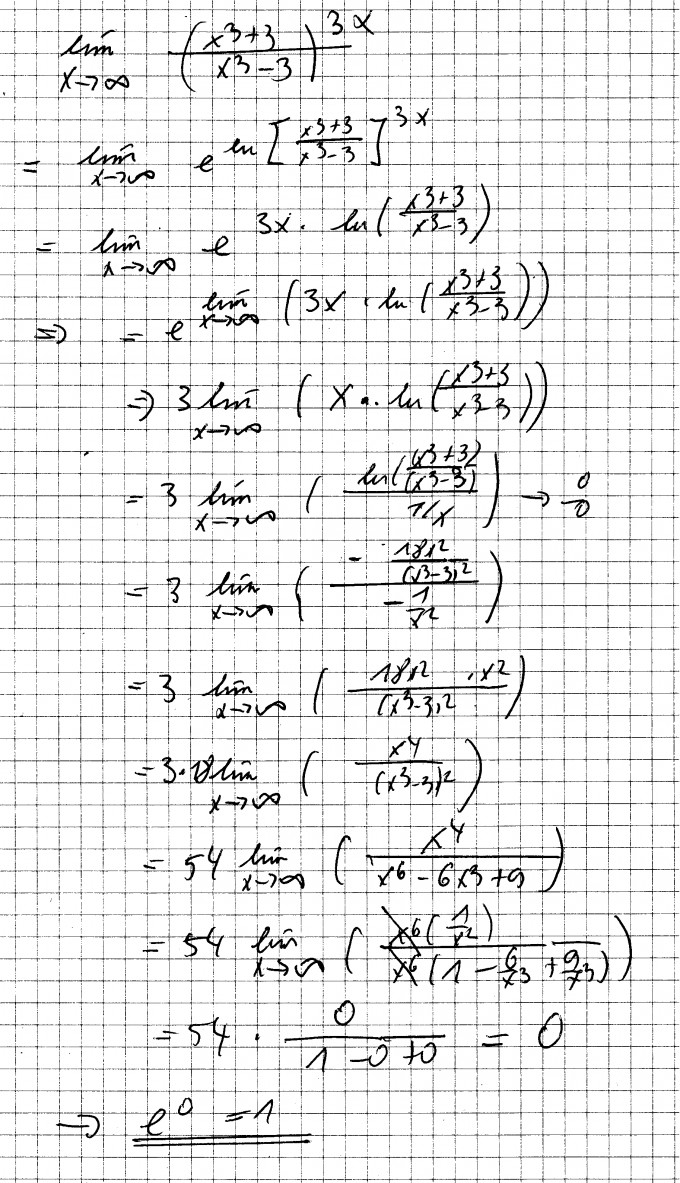 lim x→∞ ((x³+3)/(x³-3))^3x
= lim x→∞ e^ln[(x³+3)/(x³-3)]^3x
= lim x→∞ e^3x · ln((x³+3)/(x³-3))
⇒ = e^lim x→∞ (3x · ln((x³+3)/(x³-3)))
⇒ 3 lim x→∞ (x · ln((x³+3)/(x³-3)))
= 3 lim x→∞ (ln((x³+3)/(x³-3))/(1/x)) → 0/0
= 3 lim x→∞ ((- 18x²/(x³-3)²)/(-1/x²))
= 3 lim x→∞ (18x² · x²/(x³-3)²)
= 3·18 lim x→∞ (x⁴/(x³-3)²)
= 54 lim x→∞ (x⁴/(x⁶-6x³+9))
= 54 lim x→∞ (x⁶(1/x²)/(x⁶(1-6/x³+9/x³)))
= 54 · 0/(1-0+0) = 0
→ e⁰ = 1